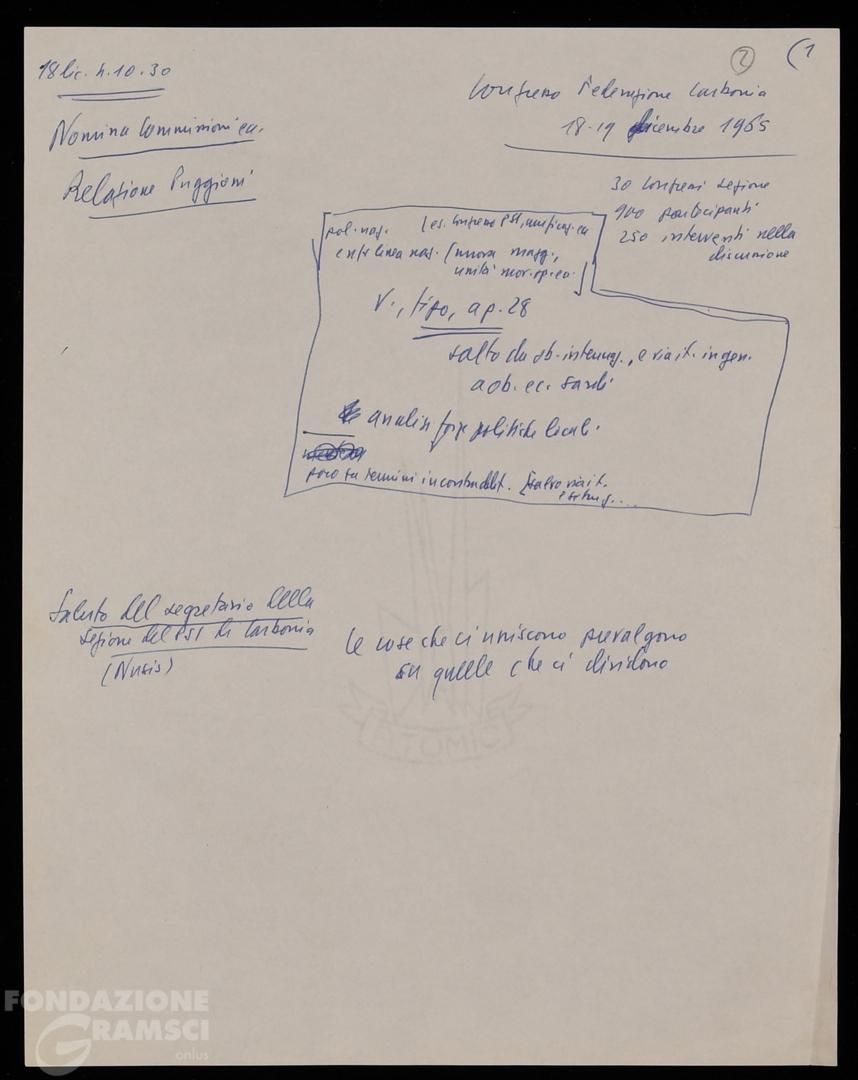 2
(1
18 dic. h. 10.30
Congresso Federazione Carbonia
18-19 dicembre 1965
Nomina Commissioni ecc.
Relazione Puggioni
30 congressi sezione
900 partecipanti
250 interventi nella
discussione
pol. naz. (es. Congresso PSI, unificaz. ecc
linea naz. (nuova magg.,
unità mov. op. ecc.
V., tipo, a p. 28
salto da ob. internaz., e via it. in gen.
a ob. ec. sardi
analisi forze politiche locali.
poco su termini
salvo via it.
Saluto del segretario della
sezione del PSI di Carbonia
(Nusis)
le cose che ci uniscono prevalgono
su quelle che ci dividono
ATOMIC
FONDAZIONE
GRAMSCI
onlus